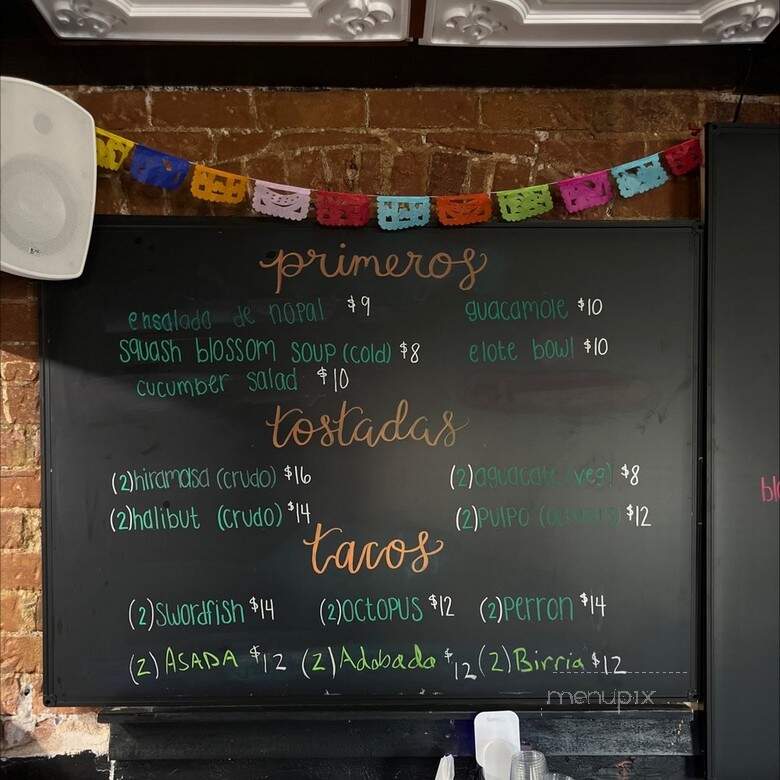 primeros
ensalada de nopal $9
guacamole $10
squash blossom soup (cold) $8
elote bowl $10
cucumber salad $10
tostadas
(2) hiramasa (crudo) $16
(2) aguacate (veg) $8
(2) halibut (crudo) $14
(2) pulpo $12
tacos
(2) swordfish $14 (2) octopus $12 (2) perron $14
(2) ASADA $12 (2) Adobada $12 (2) Birria $12
menupix